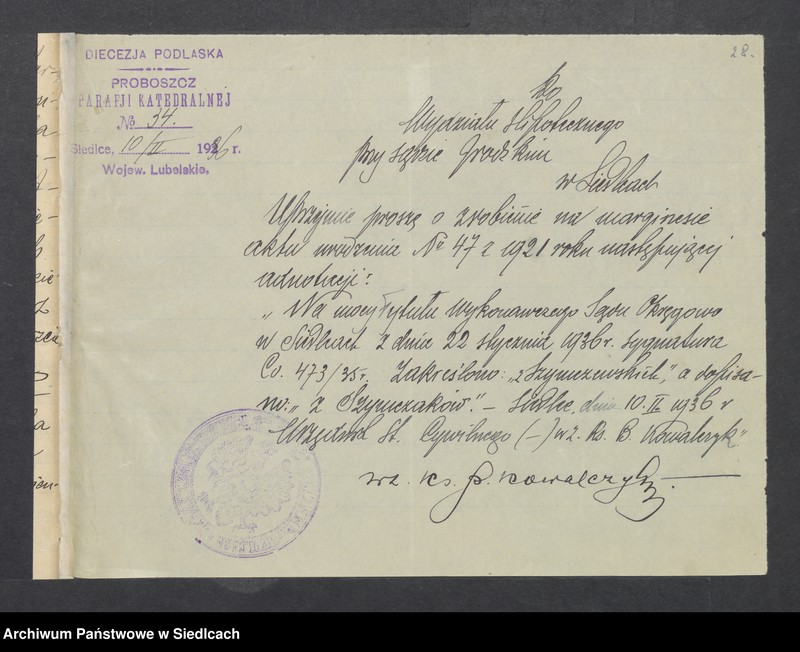 28.
DIECEZJA PODLASKA
PROBOSZCZ
PARAFJI KATEDRALNEJ
№ 34.
Siedlce, 10/II 1936 r.
Wojew. Lubelskie.
Do
Wydziału Hipotecznego
przy Sądzie Grodzkim
w Siedlcach
Uprzejmie proszę o zrobienie na marginesie
aktu urodzenia № 47 z 1921 roku następującej
adnotacji:
„Na mocy tytułu wykonawczego Sądu Okręgowo
w Siedlcach z dnia 22 stycznia 1936 r. sygnatura
Co. 473/35 r. Zakreślono: „z Szymczewskich", a dopisa-
no: „z Szymczaków". – Siedlce, dnia 10.II 1936 r
Urzędnik St. Cywilnego (–) wz. Ks. B. Kowalczyk"
wz. Ks. B. Kowalczyk
Archiwum Państwowe w Siedlcach